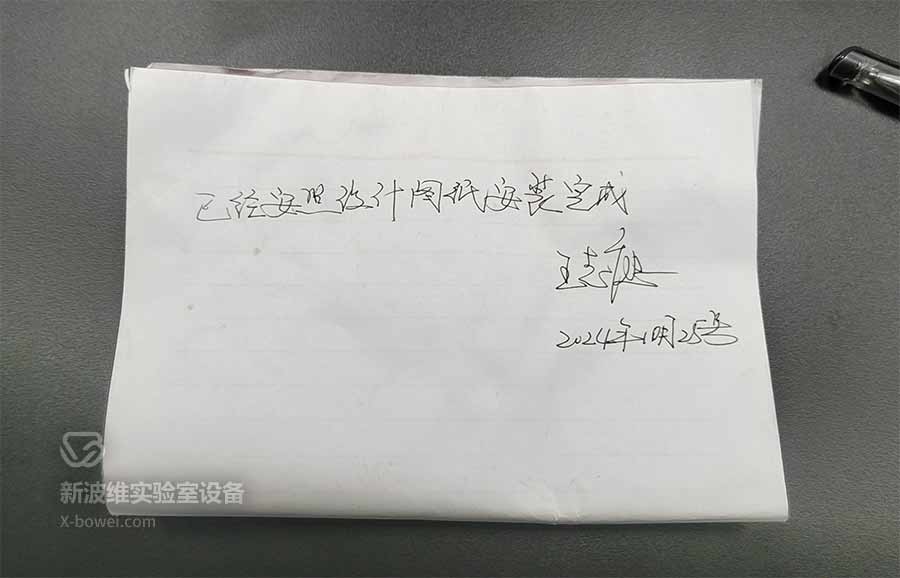 已经安照设计图纸安装完成
王志
2024年10月25号
新波维实验室设备
X-bowei.com